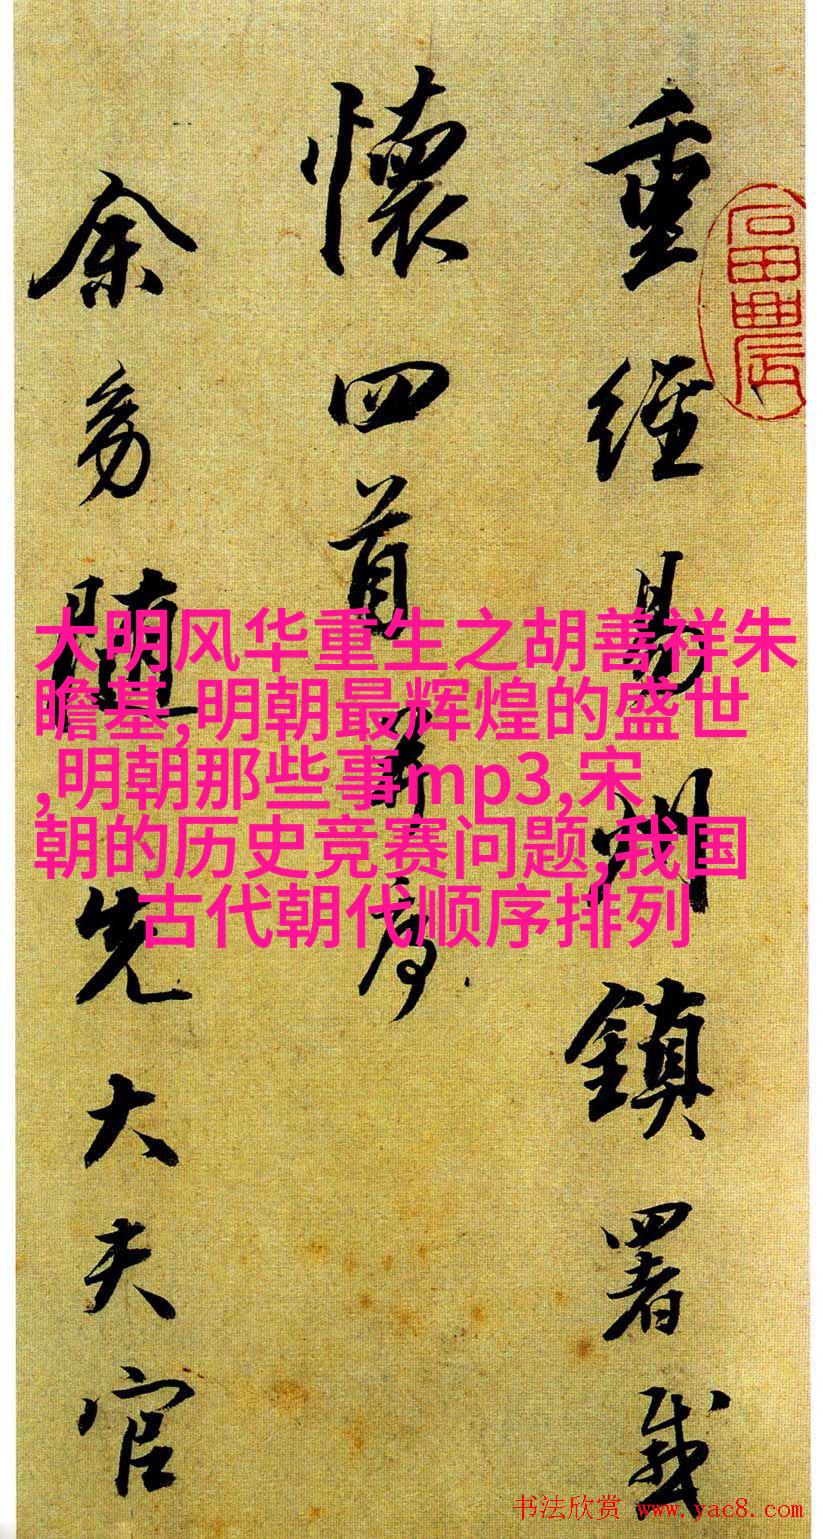 重經易州鎮署感
懷四首并序
余幼隨先大夫官
大明风华重生之胡善祥朱
瞻基,明朝最辉煌的盛世
,明朝那些事mp3,宋
朝的历史竞赛问题,我国
古代朝代顺序排列
书法欣赏 www.yac8.com